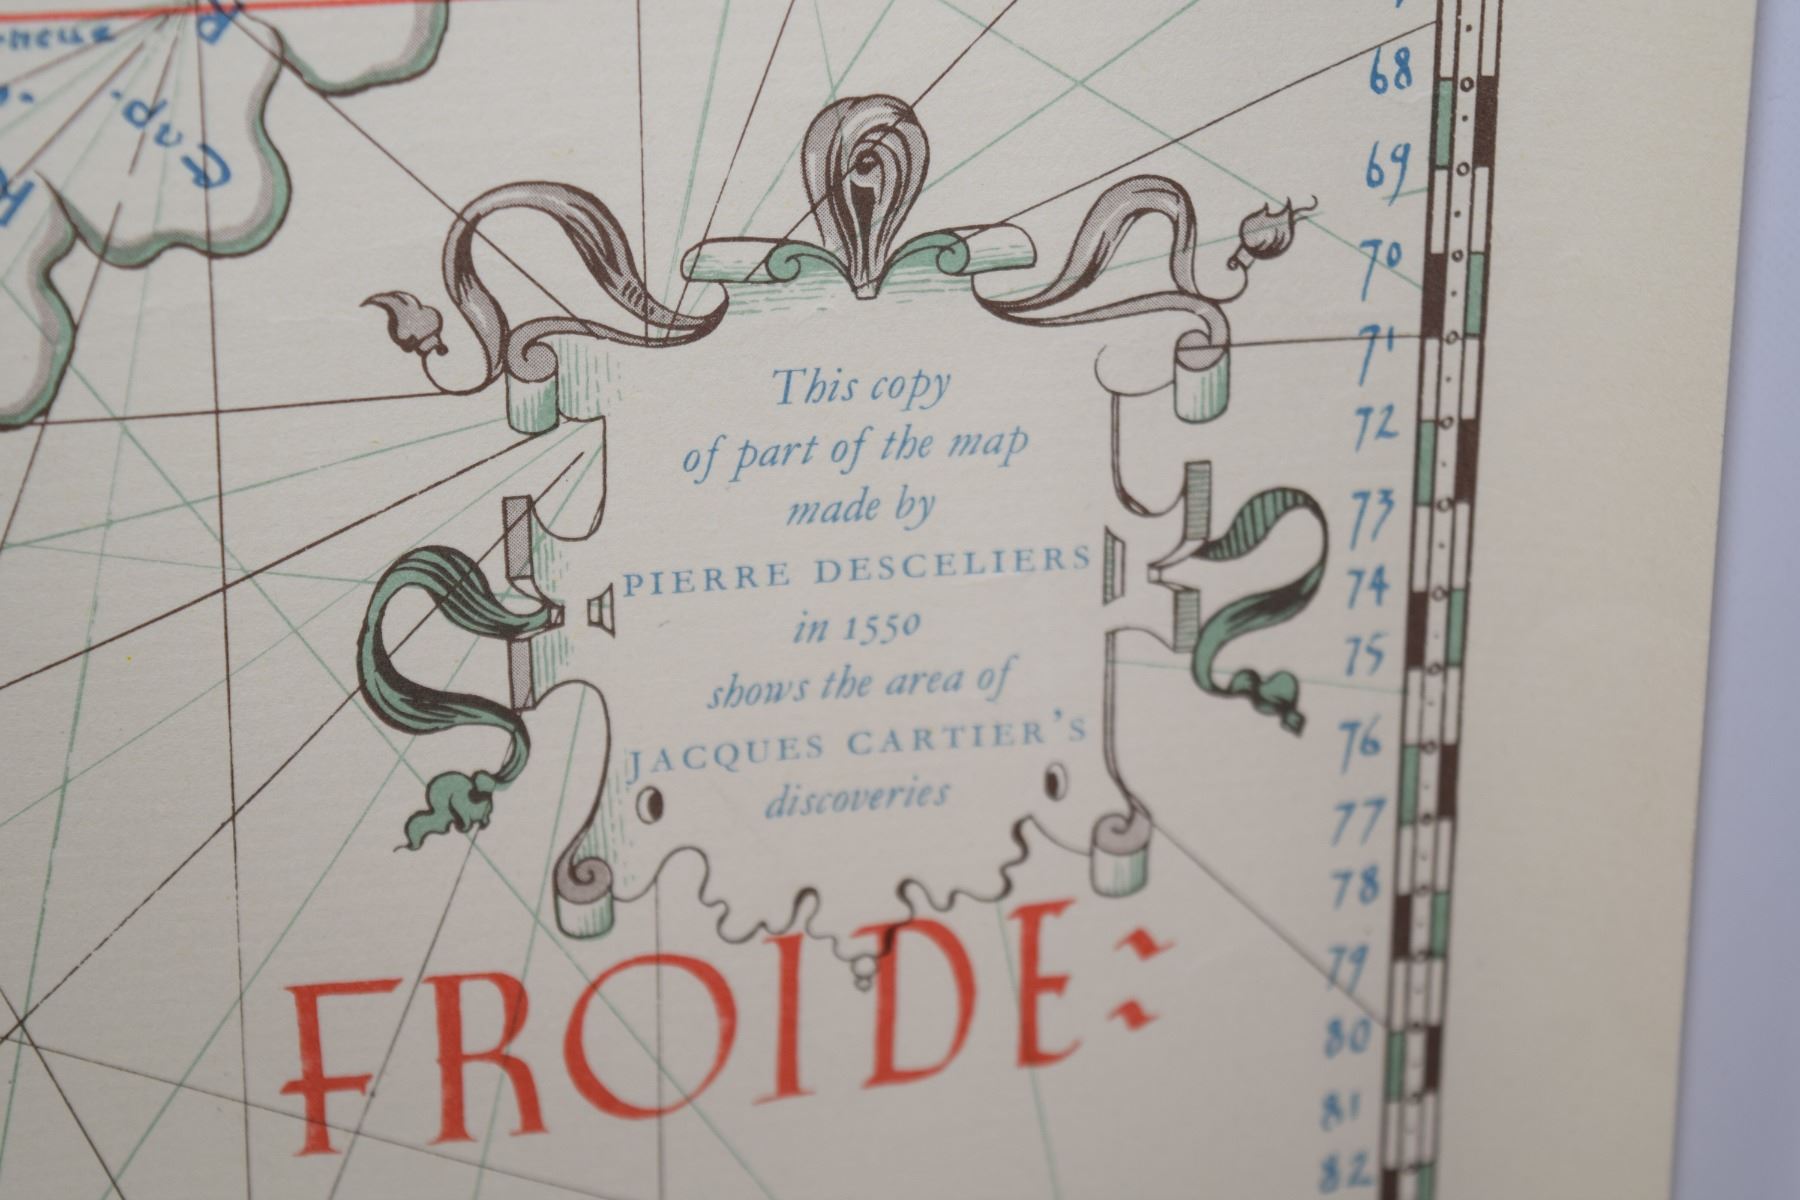 Cap.
68
69
70
71
72
73
74
75
76
77
78
79
80
81
82
This copy
of part of the map
made by
PIERRE DESCELIERS
in 1550
shows the area of
JACQUES CARTIER'S
discoveries
FROIDE: